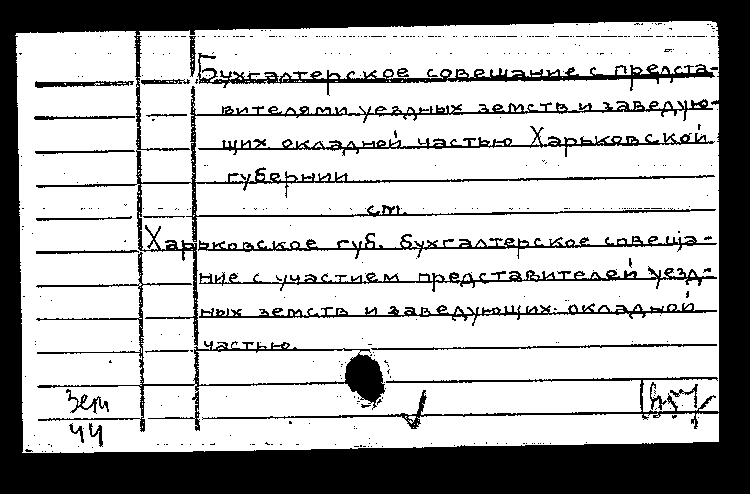 Бухгалтерское совещание с предста-
вителями уездных земств и заведую-
щих окладной частью Харьковской
губернии
см.
Харьковское губ. бухгалтерское совеща-
ние с участием представителей уезд-
ных земств и заведующих окладной
частью.
Зем
44